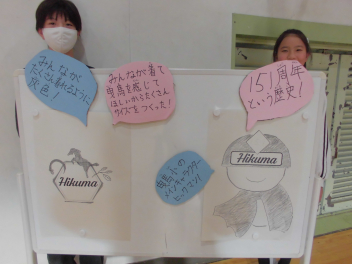 みんなが
たくさん着れるように
灰色!
みんなが着て
曳馬を感じて
ほしいからたくさん
サイズをつくった!
151周年
という歴史!
曳馬小の
メインキャラクター
ヒックマン!
Hikuma
Hikuma